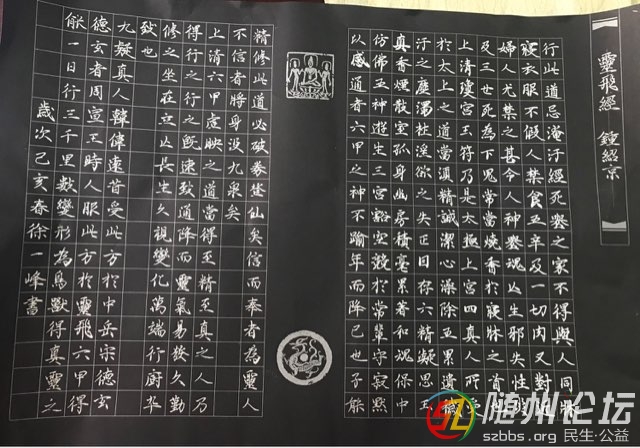 靈飛經 鍾紹京
行此道忌淹汙經死喪之家不得與人同牀
寢衣服不假人禁食五辛及一切肉又對近
婦人尤禁之甚令人神喪魂亡生邪失性災
及三世死為下鬼常當燒香於寢牀之首也
上清瓊宮玉符乃是太極上宮四真人所受
於太上之道當須精誠潔心澡除五累遺穢
汙之塵濁杜淫欲之失正目存六精凝思玉
真香煙散室孤身幽房積毫累著和魂保中
仿佛五神遊生三宮豁空競於常輩守寂默
以感通者六甲之神不踰年而降已也子能
精修此道必破券登仙矣信而奉者為靈人
不信者將身沒九泉矣
上清六甲虛映之道當得至精至真之人乃
得行之行之既速致通降而靈氣易發久勤
修之坐在立亡長生久視變化萬端行廚卒
致也
九疑真人韓偉遠昔受此方於中岳宗德玄
德玄者周宣王時人服此方於靈飛六甲得
能一日行三千里數變形為鳥獸得真靈之
歲次己亥春徐一峰書
随州论坛
szbbs.org 民生·公益